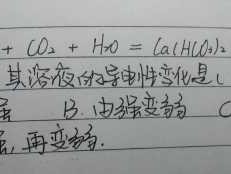 + CO₂ + H₂O = Ca(HCO₃)₂
其溶液的导电性变化是(
强 B. 由强变弱 C
强,再变弱.